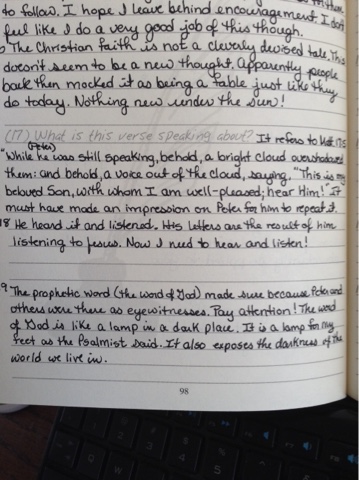 to follow. I hope I leave behind encouragement. I don't
feel like I do a very good job of this though.
The Christian faith is not a cleverly devised tale. This
doesn't seem to be a new thought. Apparently people
back then mocked it as being a fable just like they
do today. Nothing new under the sun!
(17) What is this verse speaking about? It refers to Mat 17:5
(Peter)
"While he was still speaking, behold, a bright cloud overshadowed
them: and behold, a voice out of the cloud, saying, "This is my
beloved Son, with whom I am well-pleased; hear Him!" It
must have made an impression on Peter for him to repeat it.
18 He heard it and listened. His letters are the result of him
listening to Jesus. Now I need to hear and listen!
9 The prophetic word (the word of God) made sure because Peter and
others were there as eyewitnesses. Pay attention! The word
of God is like a lamp in a dark place. It is a lamp for my
feet as the Psalmist said. It also exposes the darkness of the
world we live in.
98